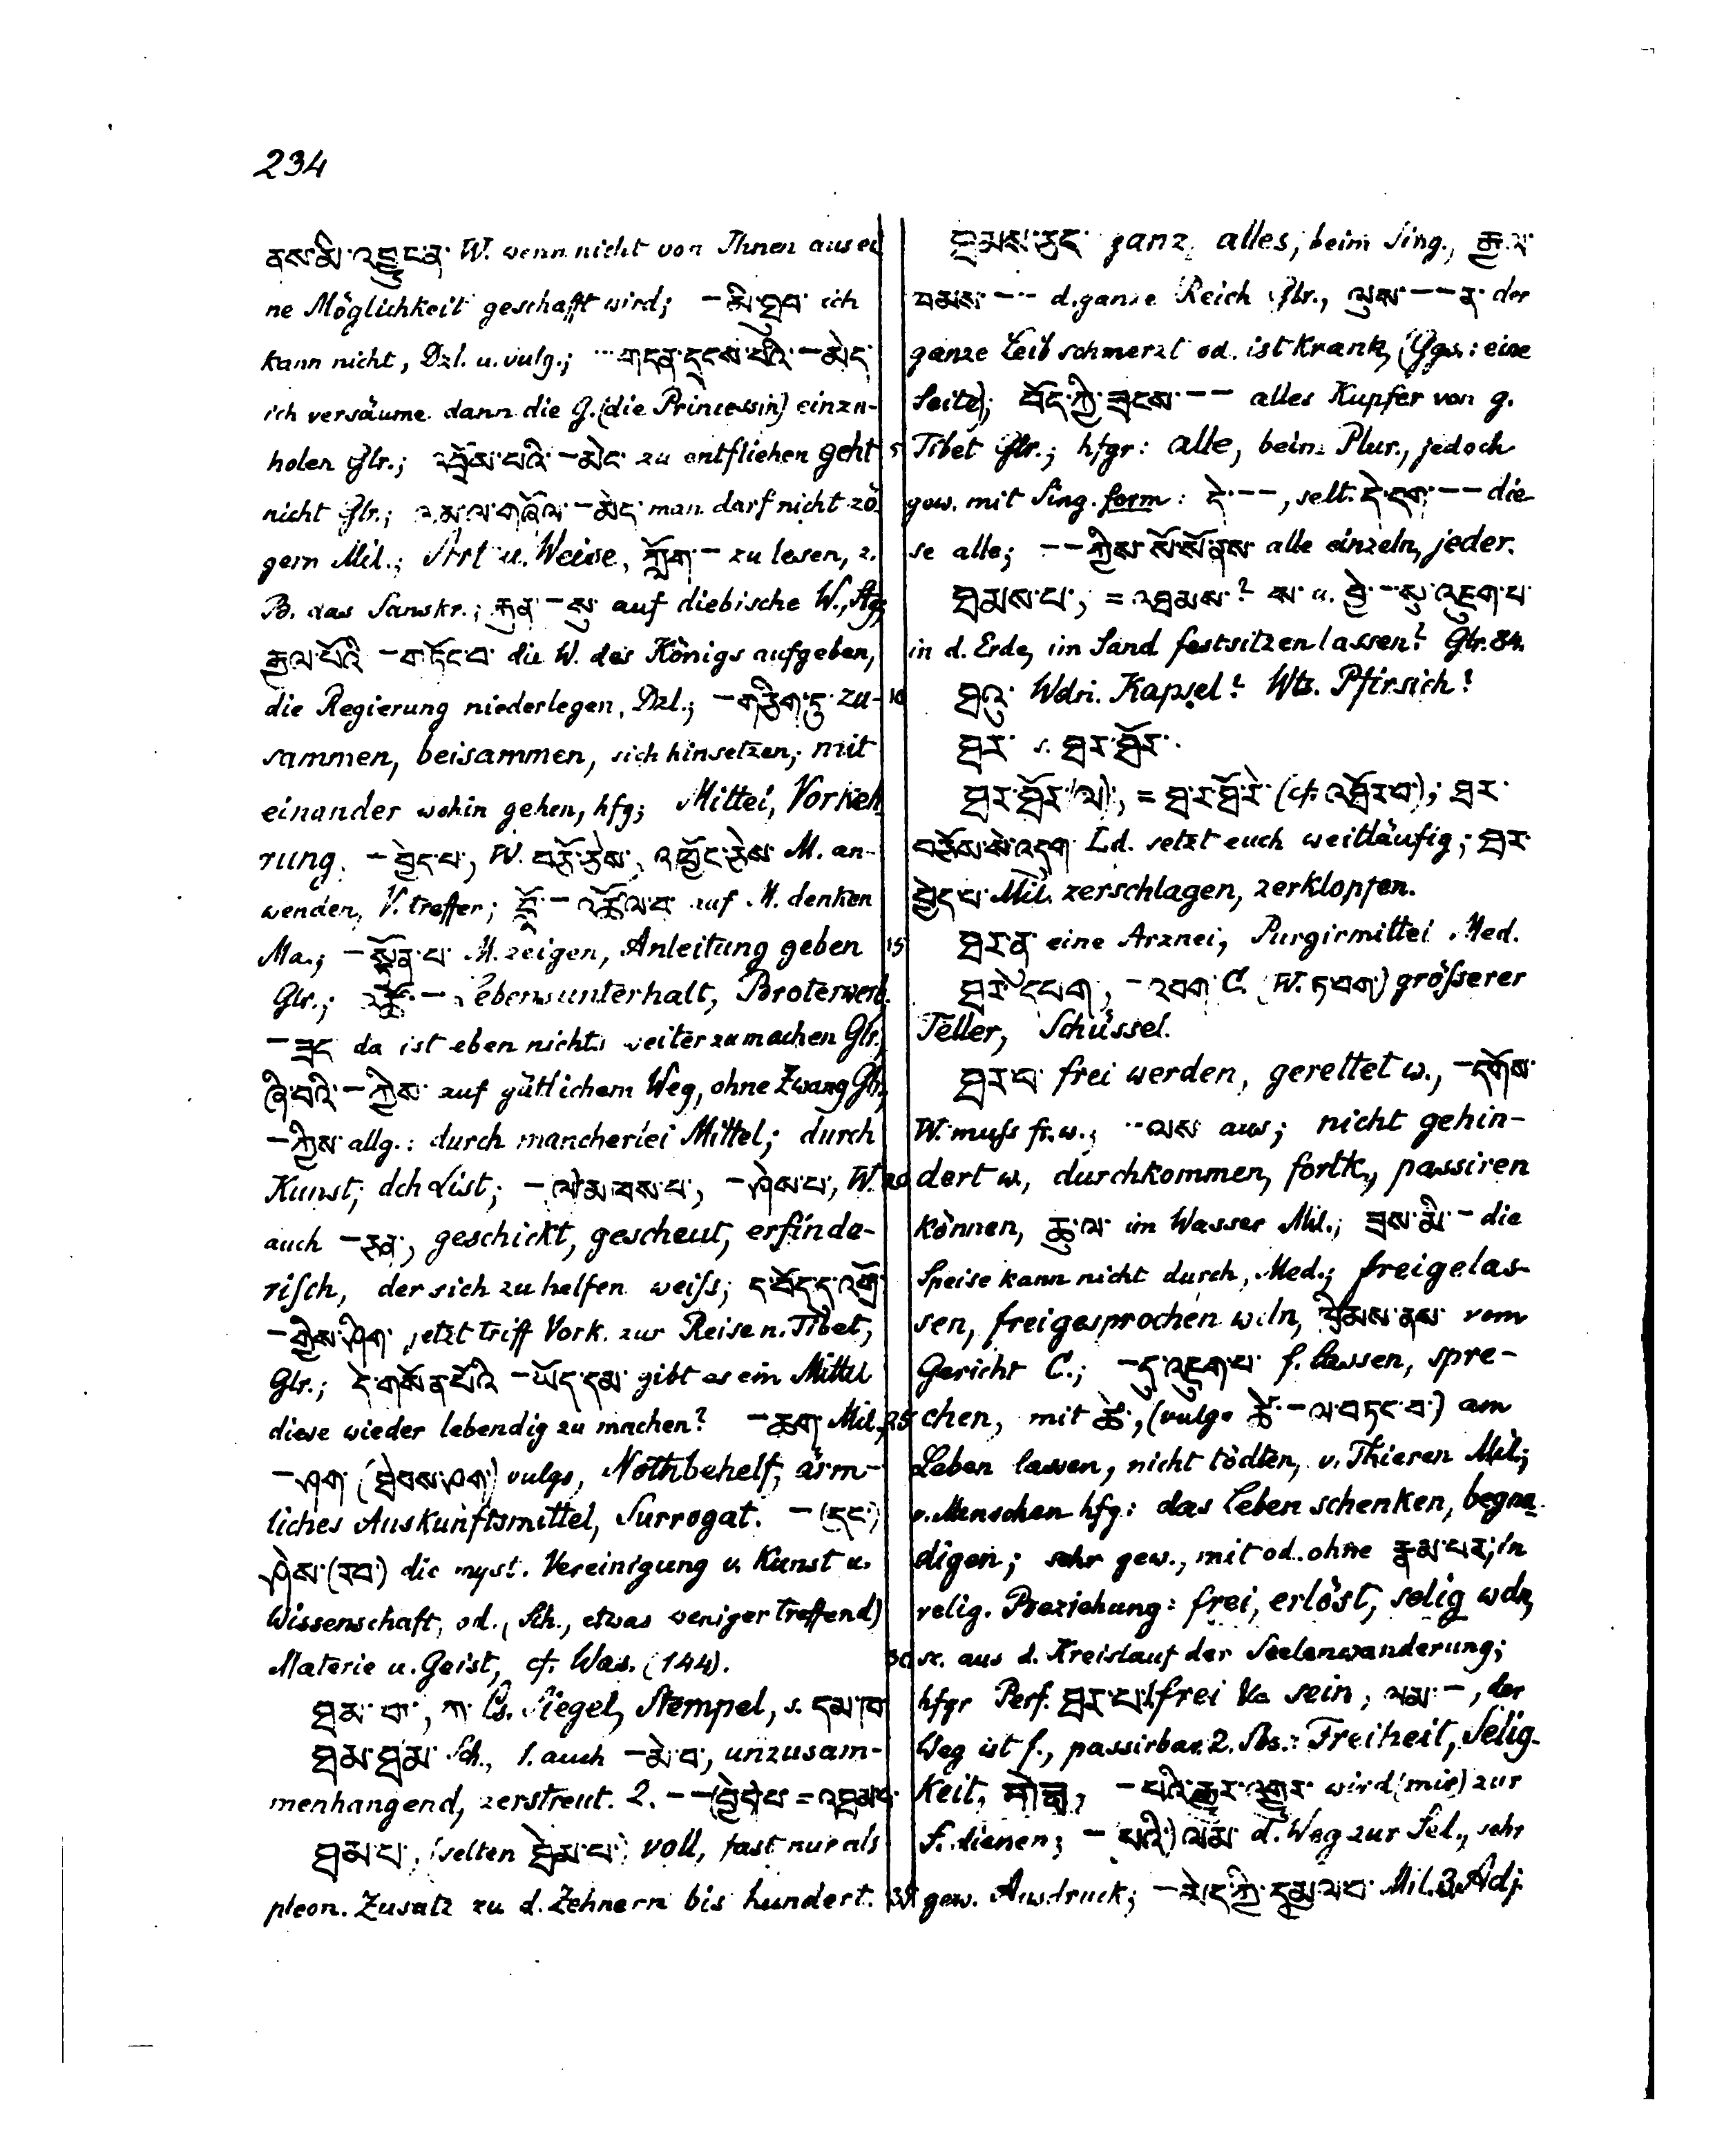 234
ནས་མི་འབྱུང་ན་ W. wenn nicht von Ihnen aus ei
ne Möglichkeit geschafft wird; — མི་ཐུབ་ ich
kann nicht, Dzl. u. vulg.;
ich versäume dann die G. (die Princessin) einzu-
holen Glr.; འབྲོས་པའི་ — མེད་ zu entfliehen geht
nicht Glr.; — མེད་ man darf nicht zö
gern Mil.; Art u. Weise, ཀློག་ — zu lesen, z.
B. das Sanskr.; རྐུན་ — སུ་ auf diebische W.,
རྒྱལ་པོའི་ — གཏོང་བ་ die W. des Königs aufgeben,
die Regierung niederlegen, Dzl.; — གཅིག་ཏུ་ zu-
sammen, beisammen, sich hinsetzen; mit
einander wohin gehen, hfg; Mittel, Vorkeh
rung. — བྱེད་པ་, W. M. an-
wenden, V. treffen; བློ་ — འཚོལ་བ་ auf M. denken
Ma.; — སྟོན་པ་ M. zeigen, Anleitung geben
Glr.; འཚོ་ — Lebensunterhalt, Broterwerb.
— ཟད་ da ist eben nichts weiter zu machen Glr.,
ཞི་བའི་ — ཀྱིས་ auf gütlichem Weg, ohne Zwang Glr.,
— ཀྱིས་ allg.: durch mancherlei Mittel; durch
Kunst; dch List; — ལ་མཁས་པ་, — ཤེས་པ་, W.
auch — ཅན་, geschickt, gescheut, erfinde-
risch, der sich zu helfen weiss; ད་བོད་དུ་འགྲོ་
— གྱིས་ཤིག་ jetzt triff Vork. zur Reise n. Tibet,
Glr.; དེ་གསོན་པོའི་ — ཡོད་དམ་ gibt es ein Mittel
diese wieder lebendig zu machen? — ཆག་ Mil.,
— ཤག་ (ཐེབས་ཤག་) vulgo, Nothbehelf, ärm-
liches Auskunftsmittel, Surrogat. — (དང་)
ཤེས་(རབ་) die myst. Vereinigung v. Kunst u.
Wissenschaft, od., (Sch., etwas weniger treffend)
Materie u. Geist, cf. Was. (144).
ཐམ་ག་, ཀ་ Cs. Siegel, Stempel, s. དམ་ཁ
ཐམ་ཐམ་ Sch., 1. auch — མེ་བ་, unzusam-
menhangend, zerstreut. 2. — — (བྱེད་པ་ = འཐམ་པ་
ཐམ་པ་, (selten ཐེམ་པ་) voll, fast nur als
pleon. Zusatz zu d. Zehnern bis hundert.
ཐམས་ཅད་ ganz, alles, beim Sing.,
ཁམས་ — — d. ganze Reich Glr., ལུས་ — — ན་ der
ganze Leib schmerzt od. ist krank, (Ggs.: eine
Seite); བོད་ཀྱི་ཟངས་ — — alles Kupfer von g.
Tibet Glr.; hfgr: alle, beim Plur., jedoch
gew. mit Sing. form: དེ་ — —, selt. དེ་དག་ — — die
se alle; — — ཀྱིས་སོ་སོ་ནས་ alle einzeln, jeder.
ཐམས་པ་, = འཐམས་? ས་ u. བྱེ་ — སུ་འཇུག་པ་
in d. Erde, im Sand festsitzen lassen? Glr. 84.
ཐའུ་ Wdn. Kapsel? Wts. Pfirsich?
ཐར་ s. ཐར་ཐོར་.
ཐར་ཐོར་(ལ), = ཐ་ར་ཐོ་རེ་ (cf. འཐོར་བ་); ཐར་
Ld. setzt euch weitläufig; ཐར་
བྱེད་པ་ Mil. zerschlagen, zerklopfen.
ཐར་ནུ་ eine Arznei, Purgirmittel Med.
— འབག་ C. (W. ཏ་བག་) grösserer
Teller, Schüssel.
ཐར་བ་ frei werden, gerettet w., — དགོས་
W. muss fr. w.; ·· ལས་ aus; nicht gehin-
dert w., durchkommen, fortk., passiren
können, ཆུ་ལ་ im Wasser Mil.; ཟས་མི་ — die
Speise kann nicht durch, Med.; freigelas-
sen, freigesprochen wdn, ཁྲིམས་ནས་ vom
Gericht C.; — དུ་འཇུག་པ་ f. lassen, spre-
chen, mit ཚེ་, (vulgo ཚེ་ — ལ་བཏང་བ་) am
Leben lassen, nicht tödten, v. Thieren Mil.;
v. Menschen hfg: das Leben schenken, begna-
digen; sehr gew., mit od. ohne རྣམ་པར་, in
relig. Beziehung: frei, erlöst, selig wdn,
sc. aus d. Kreislauf der Seelenwanderung;
hfgr Perf. ཐར་པ་ 1. frei sein, ལམ་ —, der
Weg ist f., passirbar. 2. Sbs.: Freiheit, Selig-
keit, — པའི་རྒྱུར་འགྱུར་ wird (mir) zur
F. dienen; — པའི་) ལམ་ d. Weg zur Sel., sehr
gew. Ausdruck; Mil. 3. Adj.